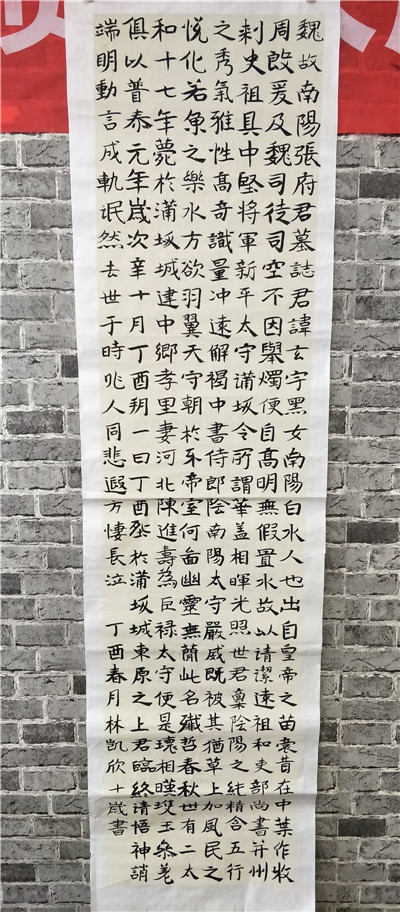 魏故南陽張府君墓誌君諱玄字黑女南陽白水人也出自皇帝之苗裔昔在中葉作牧
周殷爰及魏司徒司空不因舉燭便自高明無假置水故以清潔遠祖和吏部尚書并州
刺史祖具中堅將軍新平太守蒲坂令所謂華盖相暉光照世君稟陰陽之純精含五行
之秀氣雅性高奇識量冲遠解褐中書侍郎除南陽太守嚴威既被其猶草上加風民之
悅化若魚之樂水方欲羽翼天守朝於牙帝室何啚幽靈無簡此名殲哲春秋世有二太
和十七年薨於蒲坂城建中鄉孝里妻河北陳進壽為巨祿太守便是瑰相暎瓊玉參差
俱以普泰元年歲次辛十月丁酉朔一日丁酉塟於蒲坂城東原之上君臨終清悟神誚
端明動言成軌泯然去世于時兆人同悲遐方悽長泣 丁酉春月林凱欣十歲書